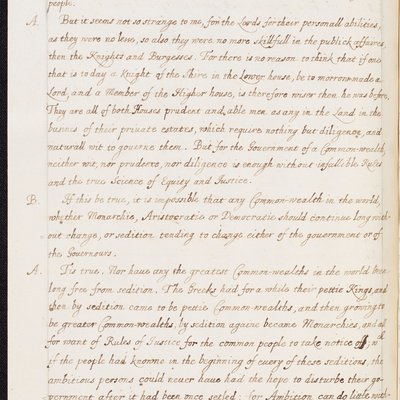 people.
A. But it seems not so strange to me, for the Lords for their personall abilities,
as they were no lesse, so also they were no more skillfull in the publick affaires,
then the Knights and Burgesses. For there is no reason to think that if one
that is to day a Knight of the Shire in the Lower house, be to morrow made a
Lord, and a Member of the Higher house, is therefore wiser then he was before.
They are all of both Houses prudent and able men as any in the Land in the
busines of their private estates, which require nothing but diligence and
naturall wit to governe them. But for the Government of a Common-wealth
neither wit, nor prudence, nor diligence is enough without infallible Rules
and the true Science of Equity and Justice.
B. If this be true, it is impossible that any Common-wealth in the world,
whether Monarchie, Aristocratie or Democratie should continue long with-
out change, or sedition tending to change either of the government or of
the Governours.
A. Tis true. Nor have any the greatest Common-wealths in the world been
long free from sedition. The Greeks had for a while their pettie Kings, and
then by sedition came to be pettie Common-wealths, and then growing to
be greater Common-wealths, by sedition againe became Monarchies, and all
for want of Rules of Justice for the common people to take notice of, wch
if the people had knowne in the beginning of every of these seditions, the
ambitious persons could never haue had the hope to disturbe their go-
vernment after it had been once setled; for Ambition can do little with-